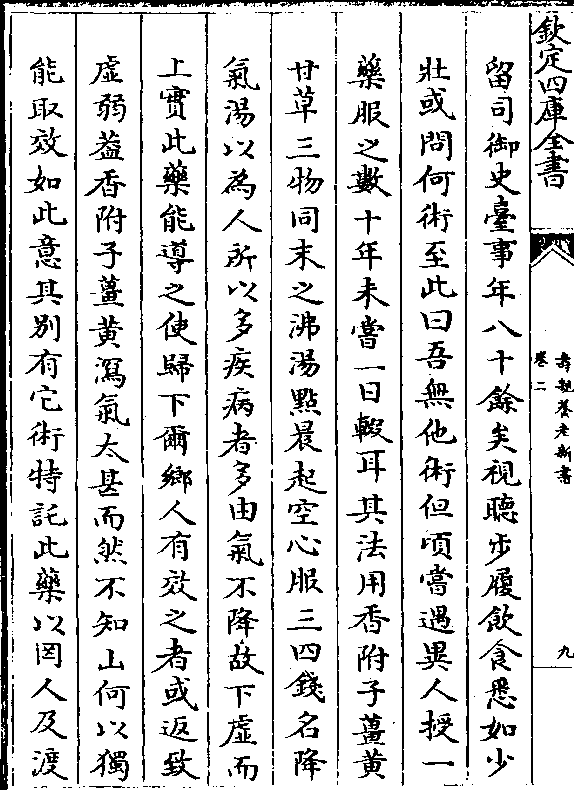 欽定四庫全書
壽親養老新書
卷二
九
留司御史臺事年八十餘矣視聽步履飲食悉如少
壯或問何術至此曰吾無他術但頃嘗遇異人授一
藥服之數十年未嘗一日輟耳其法用香附子薑黄
甘草三物同末之沸湯㸃晨起空心服三四錢名降
氣湯以為人所以多疾病者多由氣不降故下虛而
上實此藥能導之使歸下爾鄉人有效之者或返致
虛弱葢香附子薑黄瀉氣太甚而然不知山何以獨
能取效如此意其别有它術特託此藥以罔人及渡